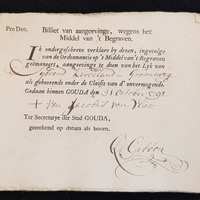 Pro Deo.
Billiet van aangeevinge, wegens het
Middel van 't Begraven.
Ik ondergeschreve verklare by desen, ingevolge
van de Ordonnantie op 't Middel van 't Begraven
geëmaneert, aangeevinge te doen van het Lyk van
in
als gehoorende onder de Classis van d'onvermogende.
Gedaan binnen GOUDA den 31 October 1791
+ Jacobus van
Ter Secretarye der Stad GOUDA,
geteekend op datum als boven.